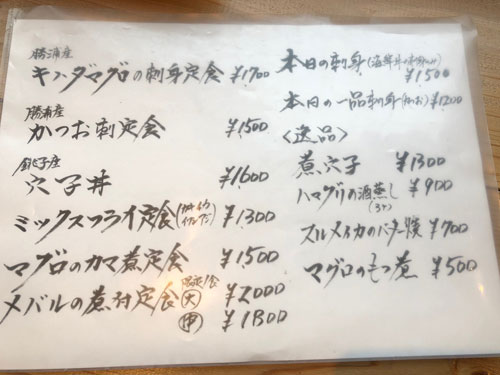 勝浦産
キハダマグロの刺身定食 ¥1700
勝浦産
かつお刺定食 ¥1500
銚子産
穴子丼 ¥1600
ミックスフライ定食 ¥1300
マグロのカマ煮定食 ¥1500
メバルの煮付定食 大 ¥2000
中 ¥1800
本日の刺身 ¥1500
本日の一品刺身(かつお) ¥1200
〈逸品〉
煮穴子 ¥1300
ハマグリの酒蒸し ¥900
(3ヶ)
スルメイカのバター焼 ¥700
マグロのもつ煮 ¥500